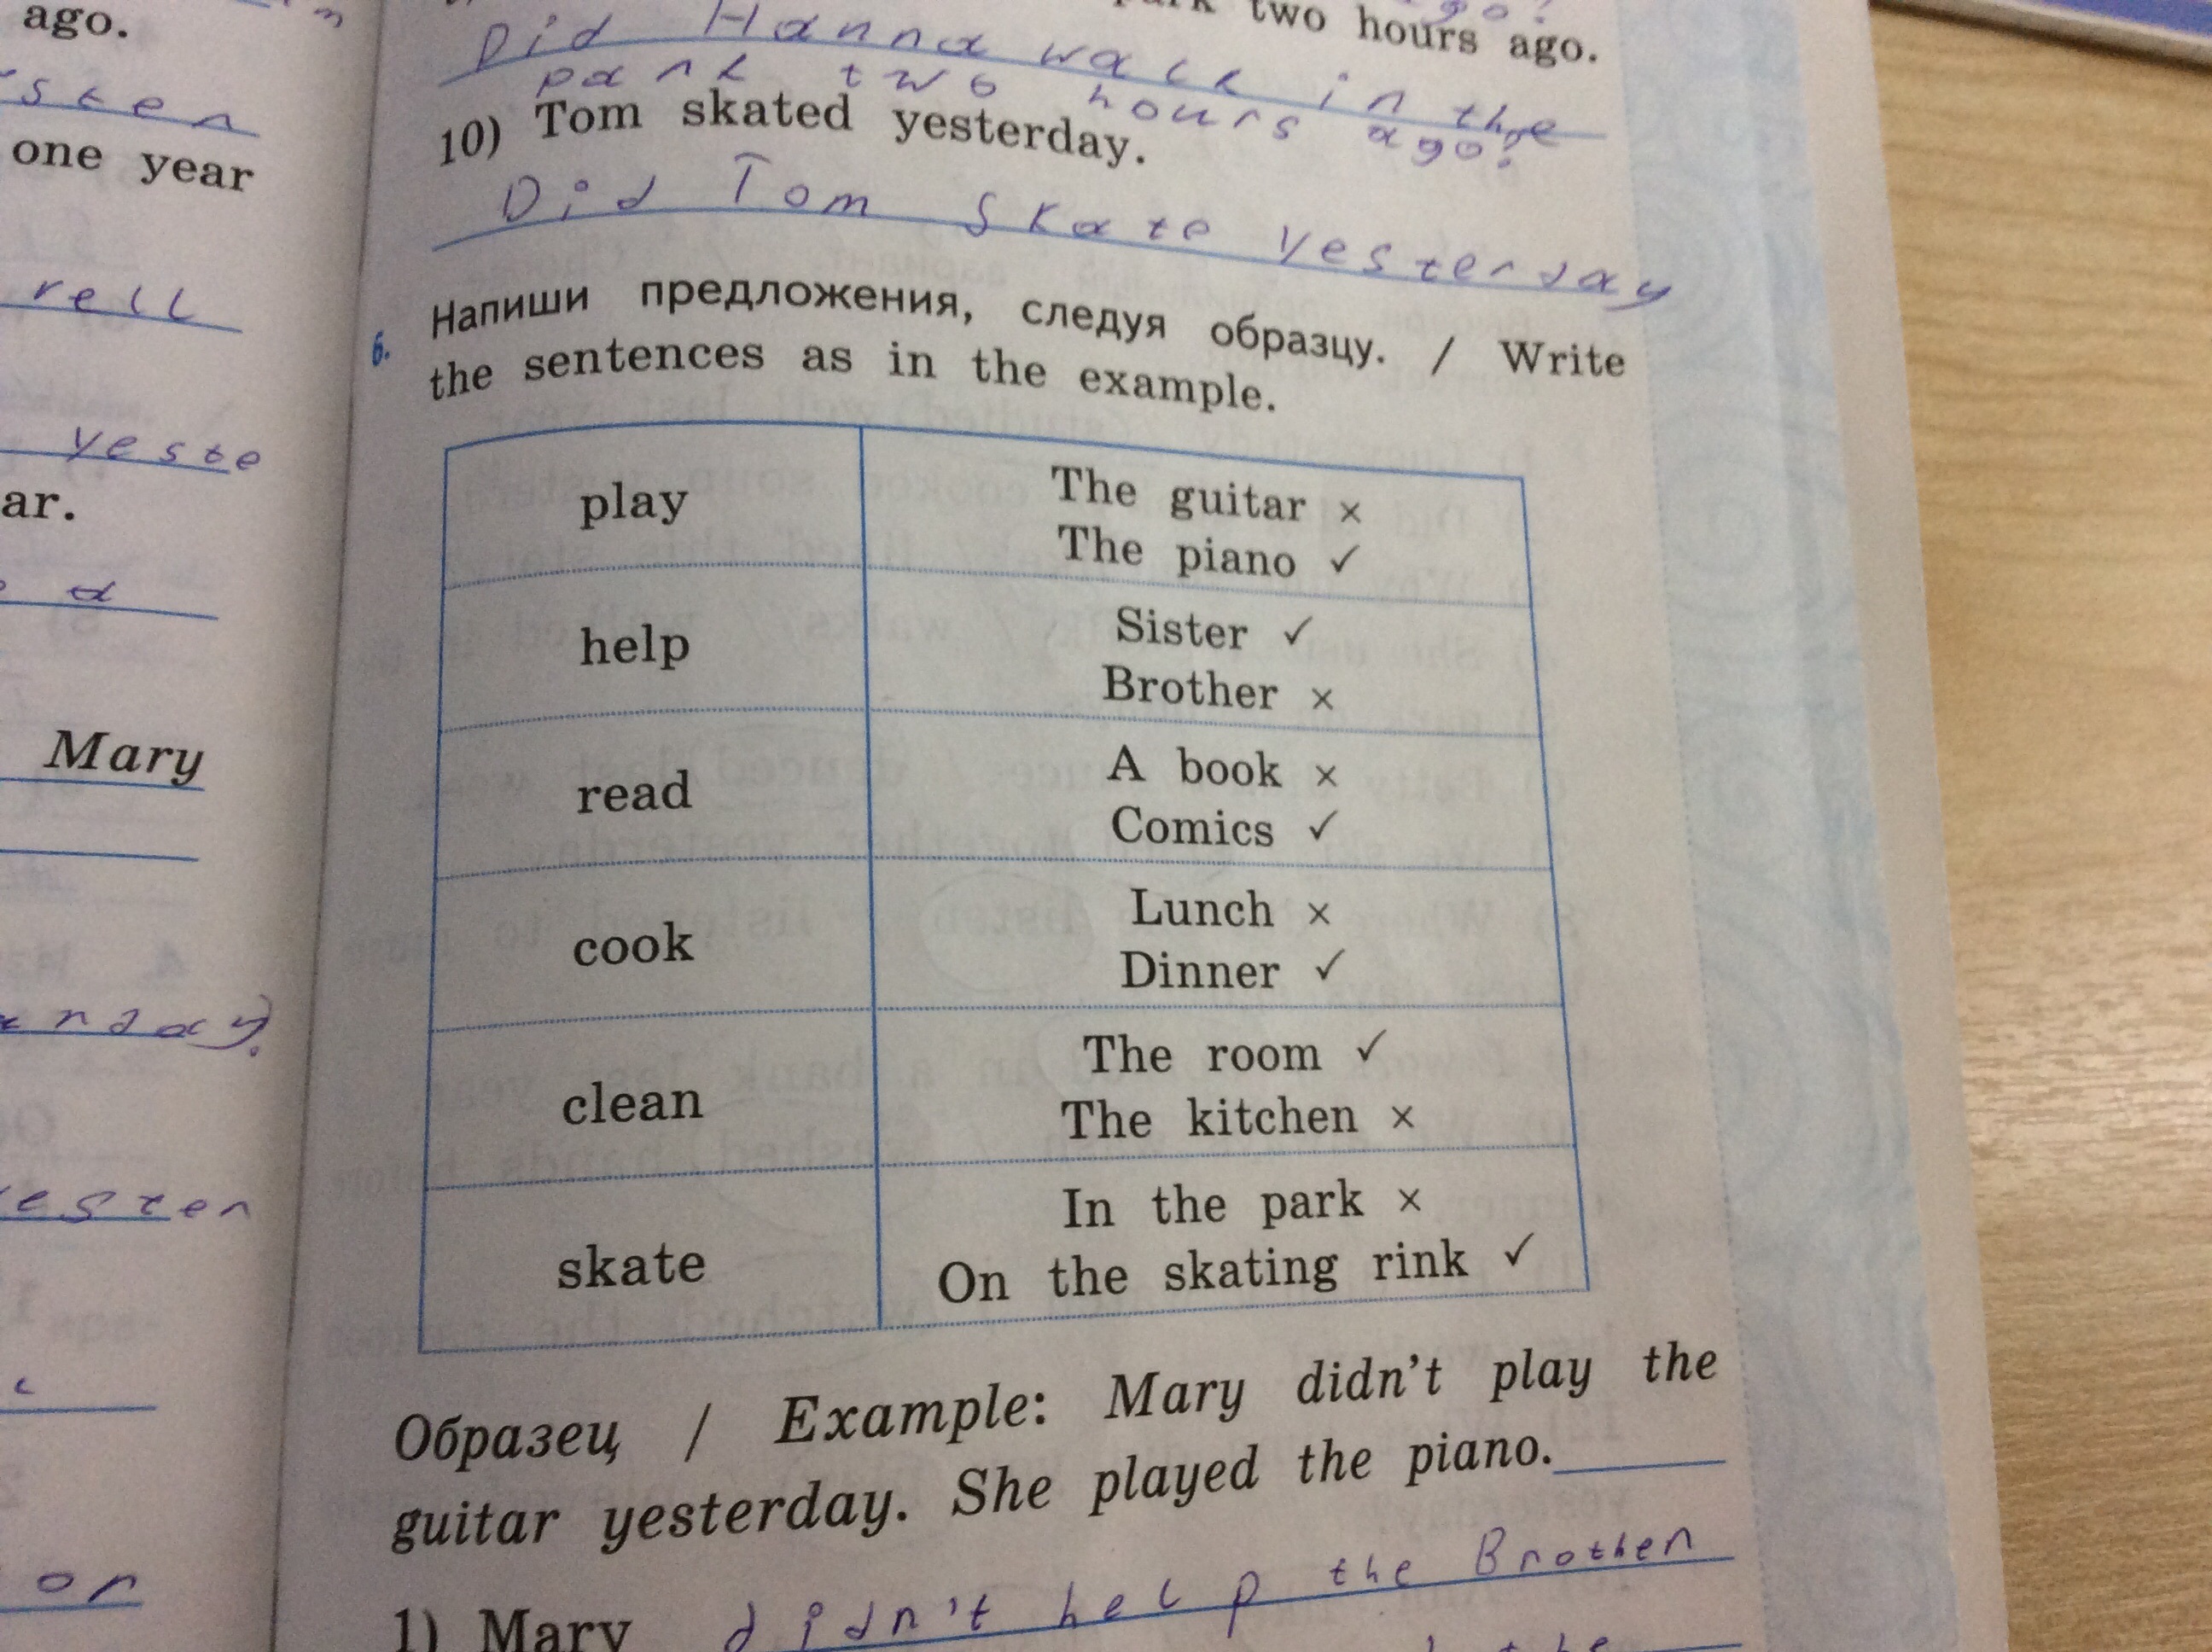 ago.
one year
rell
yeste
ar.
d
Mary
ester
or
two hours ago.
Did Hanna walk in the
park two hours ago?
10) Tom skated yesterday.
Did Tom Skate yesterday
6. Напиши предложения, следуя образцу. / Write
the sentences as in the example.
play
The guitar ×
The piano ✓
help
Sister ✓
Brother ×
read
A book ×
Comics ✓
cook
Lunch ×
Dinner ✓
clean
The room ✓
The kitchen ×
skate
In the park ×
On the skating rink ✓
Образец / Example: Mary didn't play the
guitar yesterday. She played the piano.
1) Mary didn't help the Brother
the